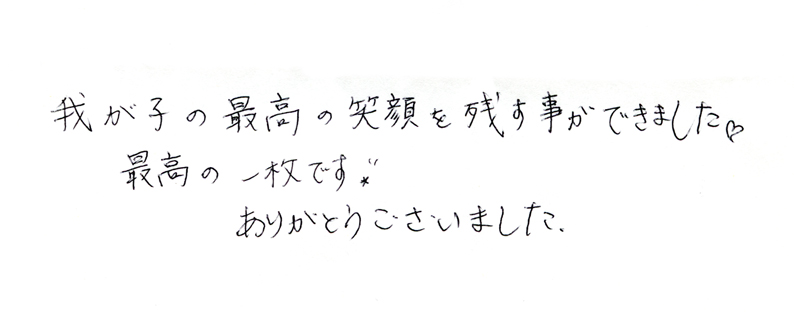 我が子の最高の笑顔を残す事ができました♡
最高の一枚です!!
ありがとうございました.